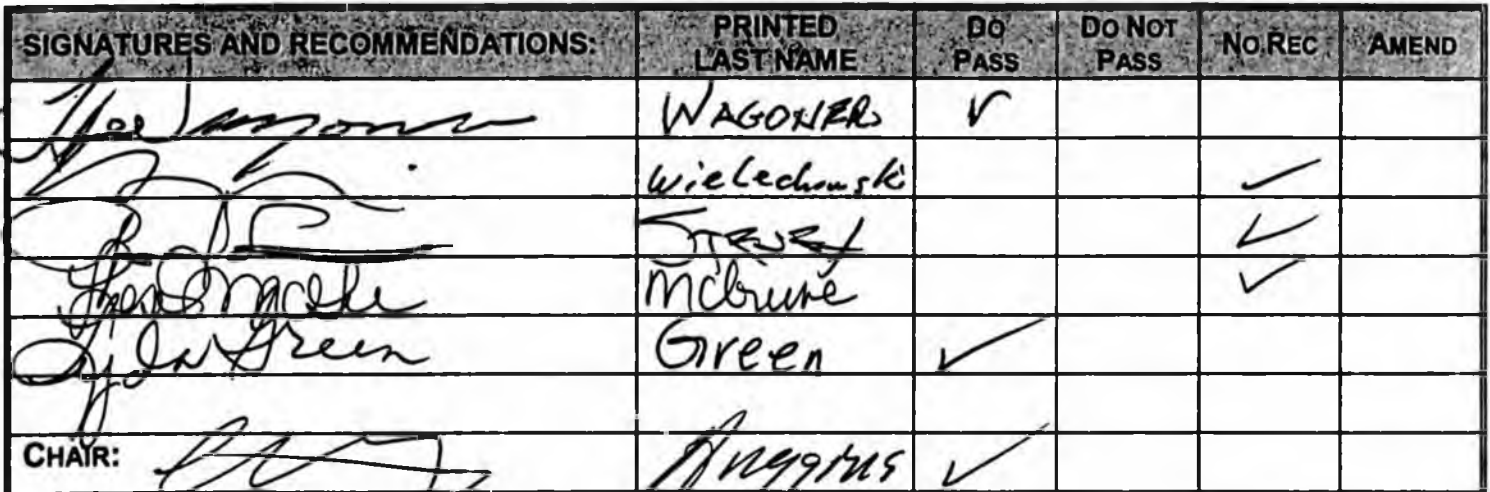 SIGNATURES AND RECOMMENDATIONS: PRINTED LAST NAME DO PASS DO NOT PASS NO REC AMEND
WAGONER ✓
Wielechowski ✓
Stevens ✓
McGuire ✓
Lyda Green Green ✓
CHAIR: Huggins ✓